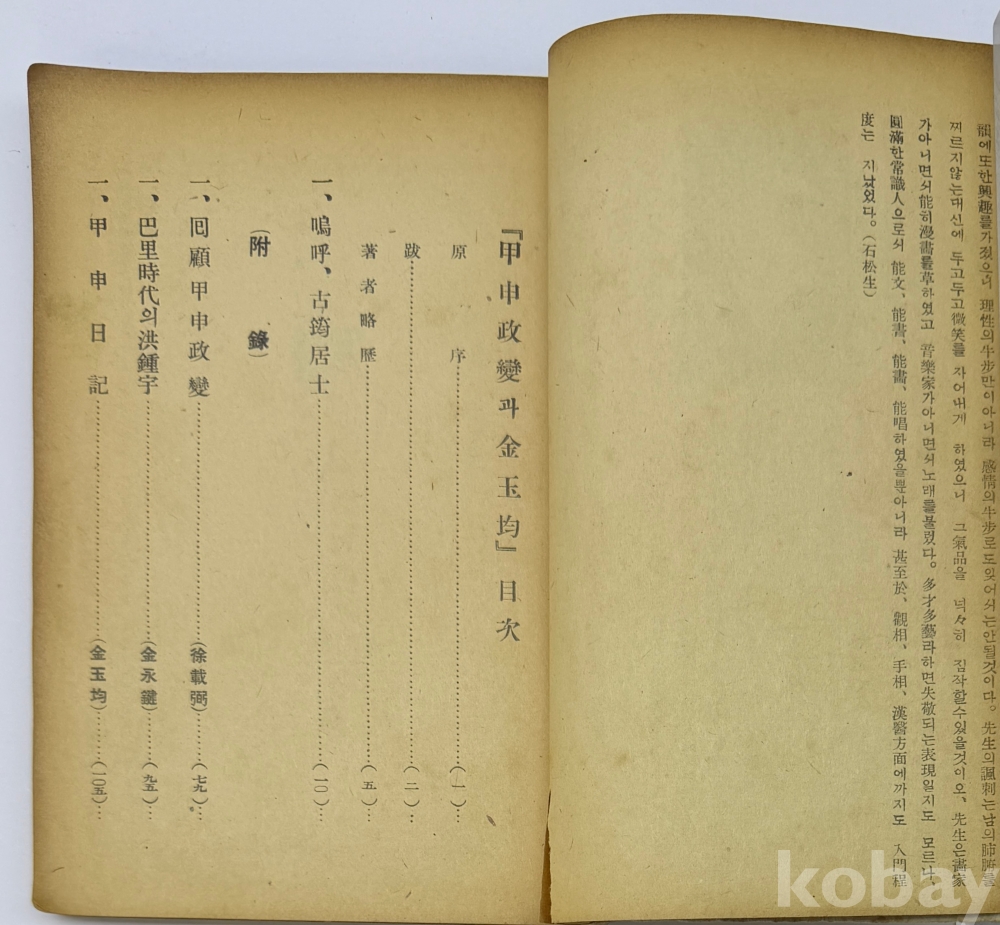 韻에또한興趣를가젔으니 理性의牛步만이아니라 感情의牛步로도잊어서는안될것이다。先生의諷刺는남의肺腑를
찌르지않는대신에 두고두고微笑를 자어내게 하였으니 그氣品을 넉々히 짐작할수있을것이오、先生은畵家
가아니면서能히漫畵를草하였고 音樂家가아니면서노래를불렀다。多才多藝라하면失敬되는表現일지도 모르나、
圓滿한常識人으로서 能文、能書、能畵、能唱하였을뿐아니라 甚至於、觀相、手相、漢醫方面에까지도 入門程
度는 지났었다。(石松生)
『甲申政變과金玉均』目次
原序……(一)…
跋……(二)…
著者略歷……(五)…
一、嗚呼、古筠居士……(一〇)…
(附錄)
一、回顧甲申政變……(徐載弼)……(七九)…
一、巴里時代의洪鍾宇……(金永鍵)……(九五)…
一、甲申日記……(金玉均)……(一〇五)…
kobay